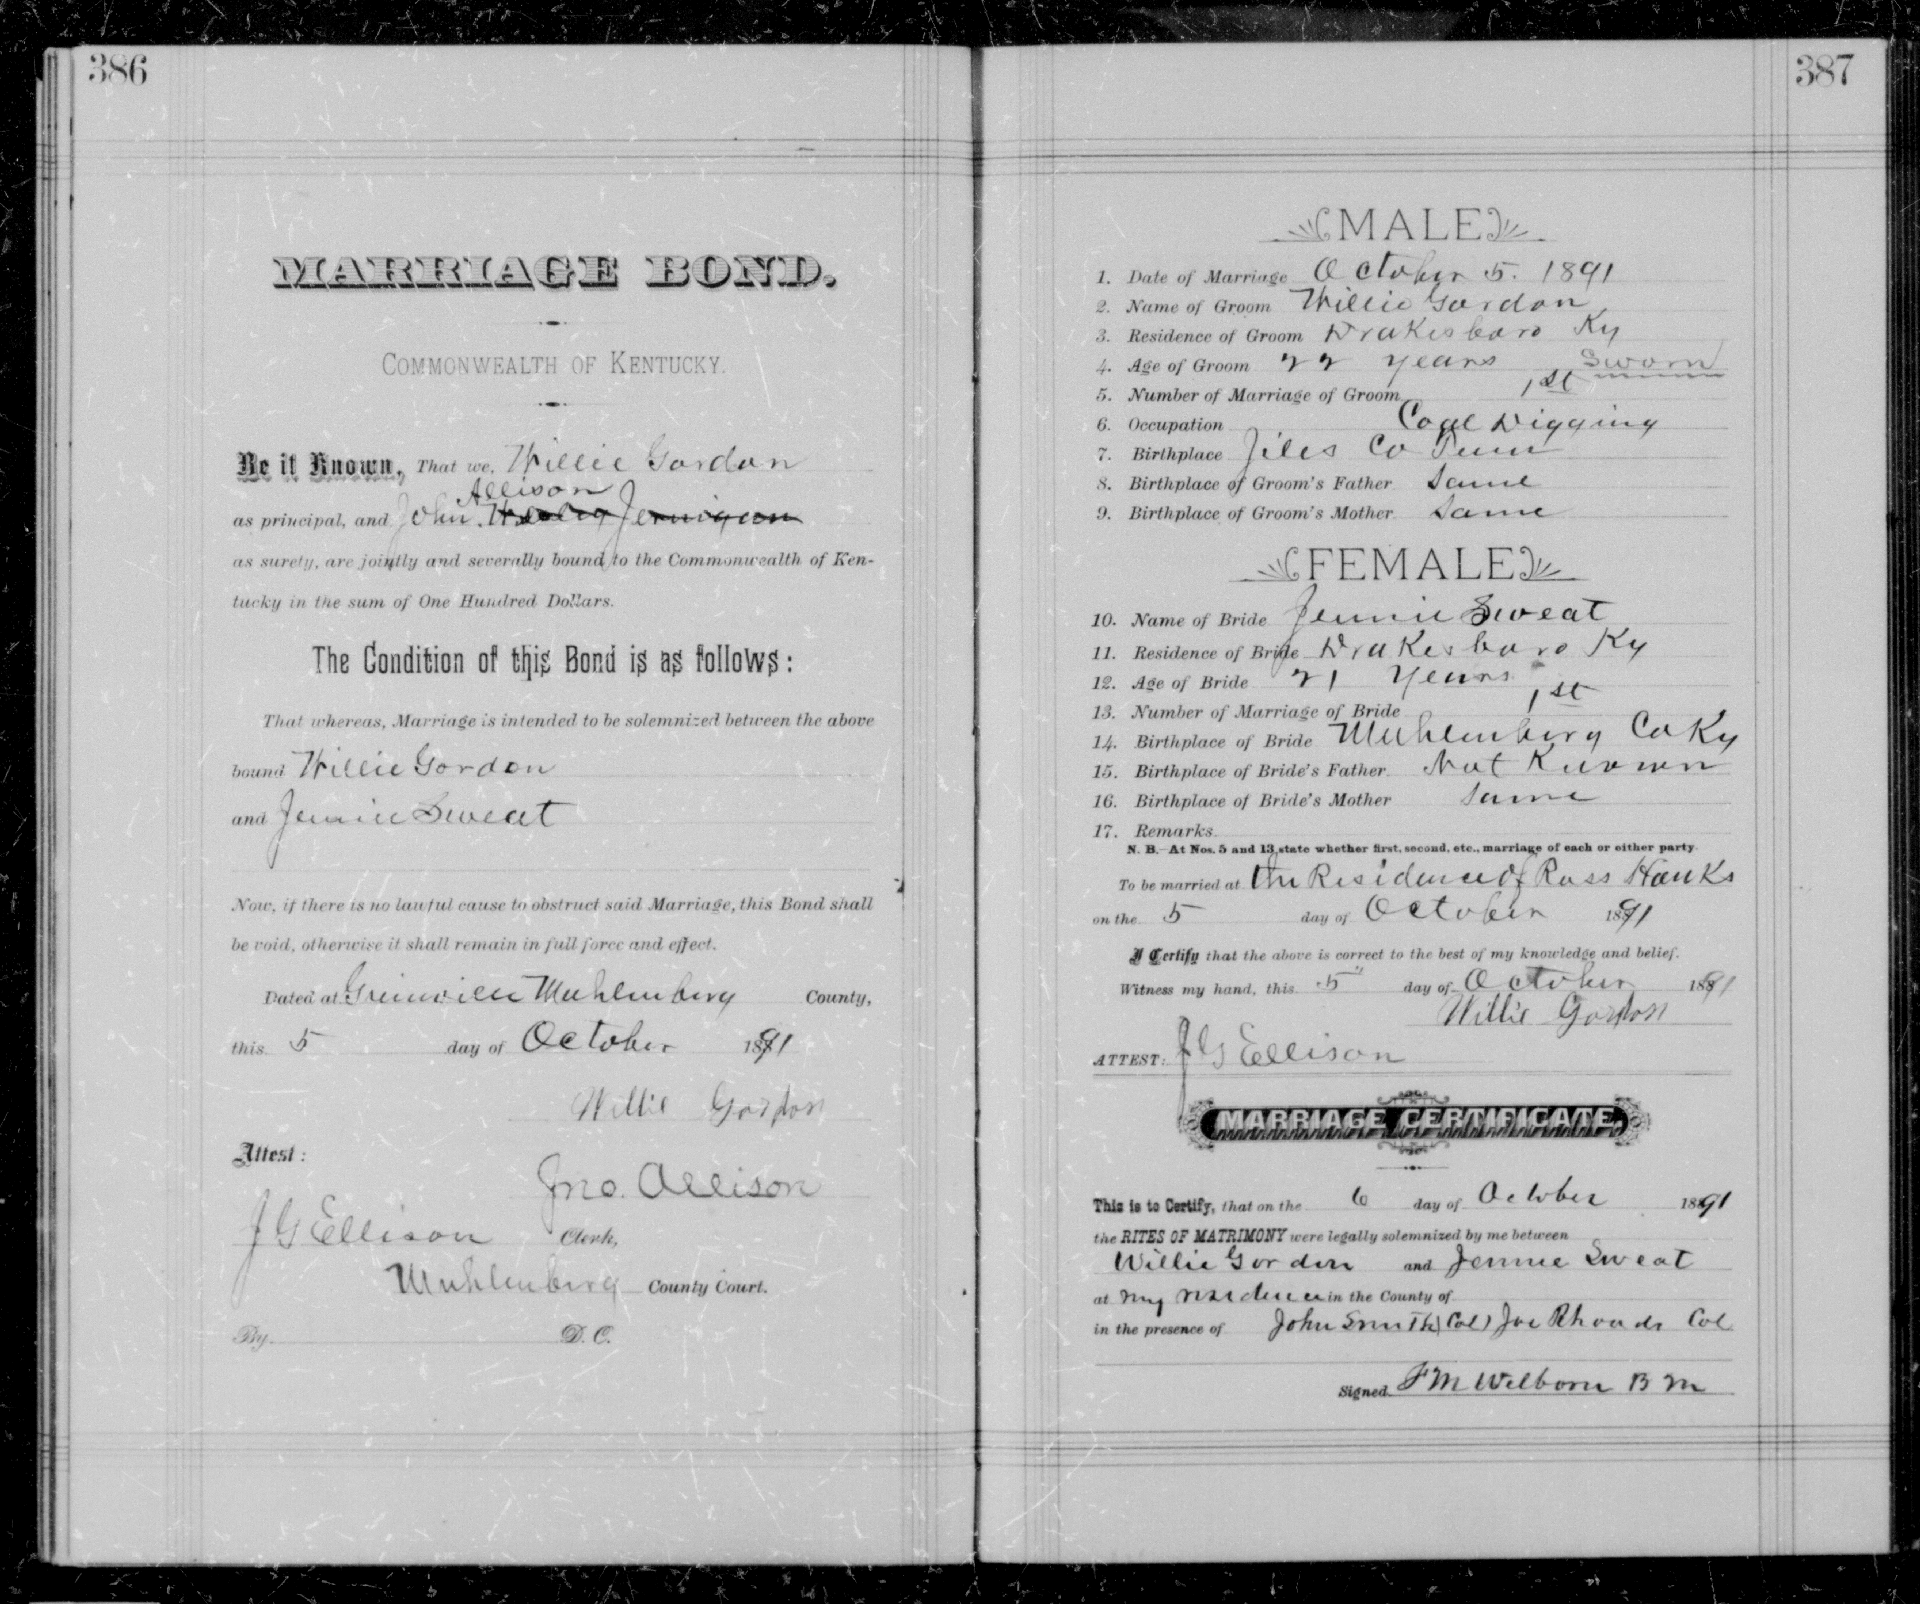 386
MARRIAGE BOND.
COMMONWEALTH OF KENTUCKY.
Be it Known, That we, Willie Gordon
Allison
as principal, and John Wesley Jernigan
as surety, are jointly and severally bound to the Commonwealth of Ken-
tucky in the sum of One Hundred Dollars.
The Condition of this Bond is as follows:
That whereas, Marriage is intended to be solemnized between the above
bound Willie Gordon
and Jennie Sweat
Now, if there is no lawful cause to obstruct said Marriage, this Bond shall
be void, otherwise it shall remain in full force and effect.
Dated at Greenville Muhlenberg County,
this 5 day of October 1891
Willie Gordon
Attest:
Jno. Allison
J G Ellison Clerk,
Muhlenberg County Court.
By. D. C.
387
MALE
1. Date of Marriage October 5. 1891
2. Name of Groom Willie Gordon
3. Residence of Groom Drakesboro Ky
4. Age of Groom 22 years Sworn
5. Number of Marriage of Groom 1st
6. Occupation Coal Digging
7. Birthplace Jiles Co Tenn
8. Birthplace of Groom's Father Same
9. Birthplace of Groom's Mother Same
FEMALE
10. Name of Bride Jennie Sweat
11. Residence of Bride Drakesboro Ky
12. Age of Bride 21 Years
13. Number of Marriage of Bride 1st
14. Birthplace of Bride Muhlenberg Co Ky
15. Birthplace of Bride's Father Not Known
16. Birthplace of Bride's Mother Same
17. Remarks
N. B.—At Nos. 5 and 13 state whether first, second, etc., marriage of each or either party.
To be married at the Residence of Ross Hanks
on the 5 day of October 1891
I Certify that the above is correct to the best of my knowledge and belief.
Witness my hand, this 5" day of October 1891
Willie Gordon
ATTEST: J G Ellison
MARRIAGE CERTIFICATE.
This is to Certify, that on the 6 day of October 1891
the RITES OF MATRIMONY were legally solemnized by me between
Willie Gordon and Jennie Sweat
at my residence in the County of
in the presence of John Smith (Col) Joe Rhoads Col
Signed F M Welborn B M